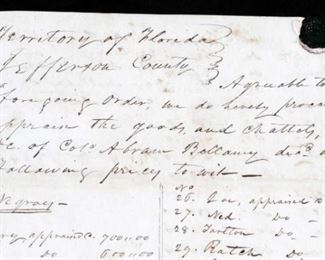 Territory of Florida
Jefferson County
Agreable to
foregoing Order, we do hereby proceed
appraise the goods, and chattels,
&c. of Colo Abram Bellamy decd
following prices to wit—
Negroes—
appraised 700,,00
Do 600,,00
No
26. appraised
27. Ned. Do
28. Tartton Do
29. Do